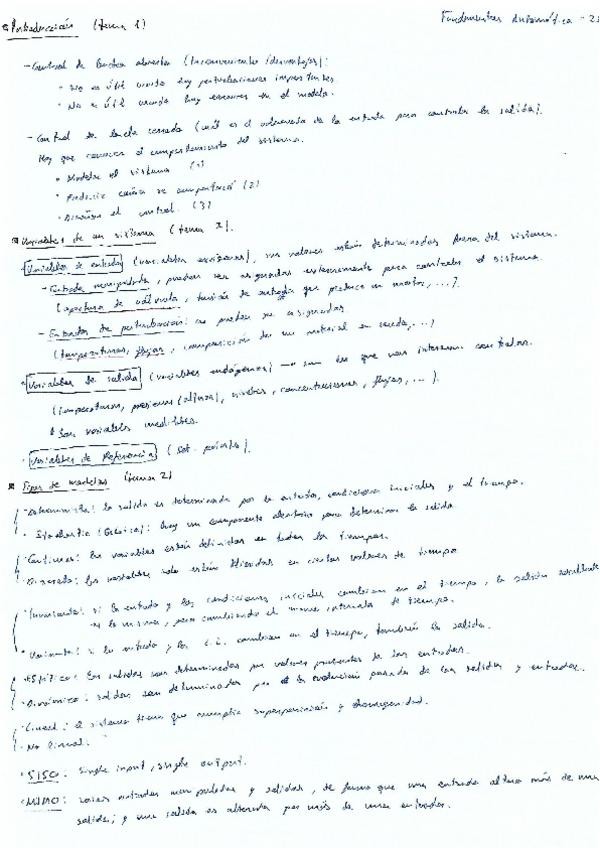 Fundamentos Automática - 2
Introducción (tema 1)
- Control de bucle abierto (Inconvenientes/desventajas):
• No es útil cuando hay perturbaciones importantes
• No es útil cuando hay errores en el modelo.
- Control de bucle cerrado (cuál es el de la entrada para controlar la salida).
Hay que conocer el comportamiento del sistema.
• Modelar el sistema (1)
• Predecir cómo se (2)
• el control. (3)
Variables de un sistema (tema 2).
Variables de entrada (variables exógenas), sus valores están determinados fuera del sistema.
- Entrada manipulada, pueden ser asignadas externamente para controlar el sistema
(apertura de válvula, tensión de que produce un motor, ...).
- Entradas de perturbación: no pueden ser asignadas
(temperaturas, flujos, composición de un material en ...)
• Variables de salida (variables endógenas) → son las que nos interesa controlar.
(temperaturas, presiones, niveles, concentraciones, flujos, ...).
Son variables medibles.
• Variables de Referencia (set points).
Tipos de modelos (tema 2)
• Determinista: la salida es determinada por la entrada, condiciones iniciales y el tiempo.
• : hay un componente aleatorio para determinar la salida
• Continuos: las variables están definidas en todos los tiempos.
• Discreto: las variables solo están definidas en ciertos valores de tiempo
• Invariante: si la entrada y las condiciones iniciales cambian en el tiempo, la salida resultante
es la misma, pero cambiando el mismo intervalo de tiempo.
• Variante: si la entrada y las c.i. cambian en el tiempo, también la salida.
• Estático: Las salidas son determinadas por valores presentes de las entradas.
• Dinámico: salidas son determinadas por la evolución pasada de las salidas y entradas.
• Lineal: el sistema tiene que cumplir superposición y homogeneidad.
• No lineal:
• SISO: single input, single output.
• MIMO: varias entradas manipuladas y salidas, de forma que una entrada altera más de una
salida; y una salida es alterada por más de una entrada.